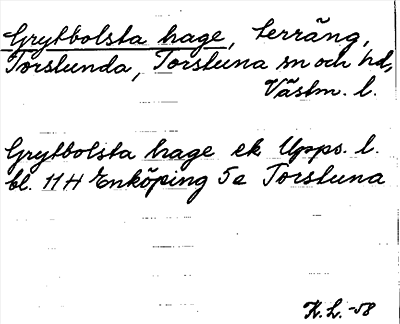 Grytbolsta hage, terräng,
Torslunda, Torstuna sn och hd,
Västm. l.
Grytbolsta hage ek Upps. l.
bl. 11 H Enköping 5e Torstuna
K. L. -58